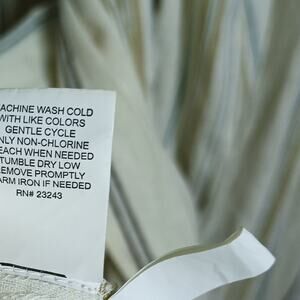 ACHINE WASH COLD
WITH LIKE COLORS
GENTLE CYCLE
NLY NON-CHLORINE
EACH WHEN NEEDED
TUMBLE DRY LOW
EMOVE PROMPTLY
ARM IRON IF NEEDED
RN# 23243